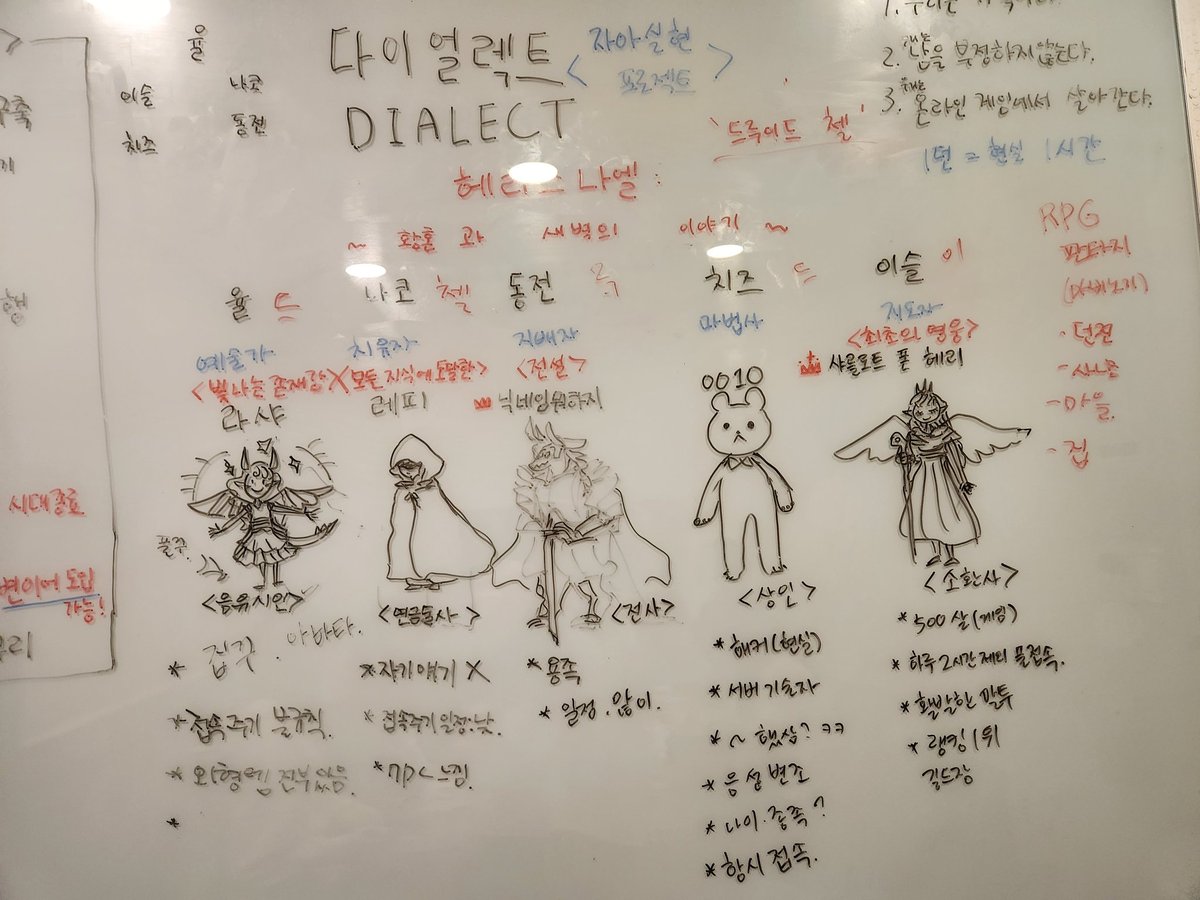 율
이슬 나코
치즈 동전
다이얼렉트
DIALECT
<자아실현
프로젝트>
'드루이드 첼'
2. 삶을 부정하지 않는다.
3. 온라인 게임에서 살아간다.
1턴 = 현실 1시간
나엘:
~ 황혼 과 새벽의 이야기 ~
RPG
판타지
(마비노기)
· 던전
· 사냥
- 마을
- 집
구축
기
행
시대종료
변이에 도입
가능!
율 드
예술가
<빛나는 존재감>
라샤
<음유시인>
* 집착. 아바타.
* 접속주기 불규칙.
* 외형템 전부있음
*
나코 첼
치유자
<모든 지식에 도달한>
레피
<연금술사>
* 자기얘기 X
* 접속주기 일정:낮.
* 느낌.
동전
지배자
<전설>
닉네임뭐하지
<전사>
* 용족
* 일정. 많이.
치즈 드
마법사
0010
<상인>
* 해커(현실)
* 서버 기술자
* ~ 했삼? ㅋㅋ
* 음성변조
* 나이.종족?
* 항시 접속.
이슬 이
지도자
<최초의 영웅>
샤를로트 폰 헤리
<소환사>
* 500살(게임)
* 하루 2시간 제외 풀접속.
* 활발한 말투
* 랭킹 1위
길드장